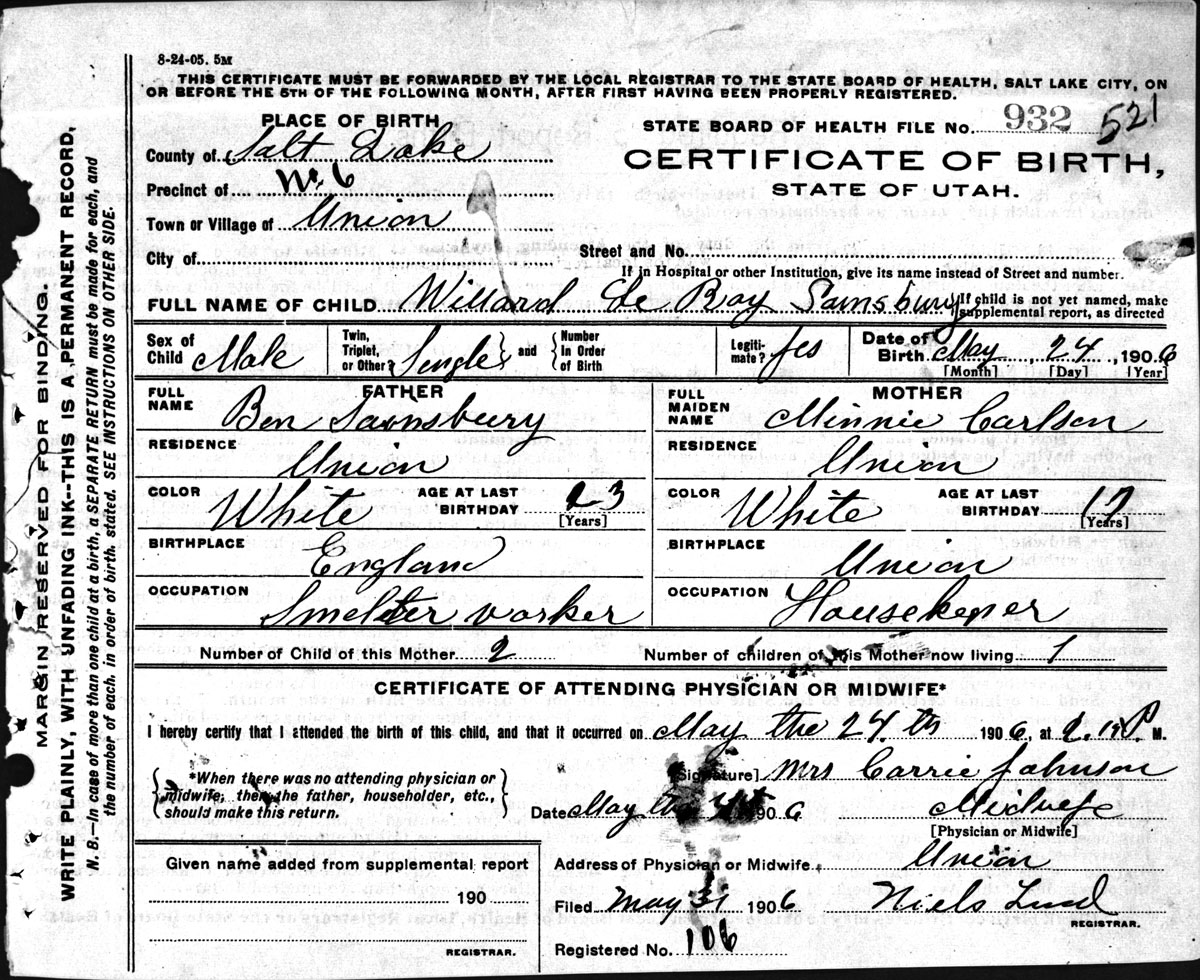 8-24-05. 5M
THIS CERTIFICATE MUST BE FORWARDED BY THE LOCAL REGISTRAR TO THE STATE BOARD OF HEALTH, SALT LAKE CITY, ON
OR BEFORE THE 5TH OF THE FOLLOWING MONTH, AFTER FIRST HAVING BEEN PROPERLY REGISTERED.
PLACE OF BIRTH,
STATE BOARD OF HEALTH FILE No. 932 521
County of Salt Lake
CERTIFICATE OF BIRTH,
Precinct of No. 6
STATE OF UTAH.
Town or Village of Union
City of
Street and No.
If in Hospital or other Institution, give its name instead of Street and number.
FULL NAME OF CHILD Willard Le Roy Sainsbury {If child is not yet named, make supplemental report, as directed
Sex of Child Male Twin, Triplet, or Other? Single } and { Number In Order of Birth Legiti-mate? yes Date of Birth May, 24, 1906
[Month] [Day] [Year]
FATHER
MOTHER
FULL NAME Ben Sainsbury
FULL MAIDEN NAME Minnie Carlson
RESIDENCE Union
RESIDENCE Union
COLOR White AGE AT LAST BIRTHDAY 23 [Years]
COLOR White AGE AT LAST BIRTHDAY 17 [Years]
BIRTHPLACE England
BIRTHPLACE Union
OCCUPATION Smelter worker
OCCUPATION Housekeper
Number of Child of this Mother 2 Number of children of this Mother now living 1
CERTIFICATE OF ATTENDING PHYSICIAN OR MIDWIFE*
I hereby certify that I attended the birth of this child, and that it occurred on May the 24. th 1906, at P. M.
{ *When there was no attending physician or midwife, then the father, householder, etc., should make this return. }
[Signature] Mrs Carrie Johnson
Date May the 1906 Midwife
[Physician or Midwife]
Given name added from supplemental report
190
REGISTRAR.
Address of Physician or Midwife Union
Filed May 31 1906 Niels Lind
REGISTRAR.
Registered No. 106
MARGIN RESERVED FOR BINDING
WRITE PLAINLY, WITH UNFADING INK--THIS IS A PERMANENT RECORD,
N. B.—In case of more than one child at a birth, a SEPARATE RETURN must be made for each, and
the number of each, in order of birth, stated. SEE INSTRUCTIONS ON OTHER SIDE.